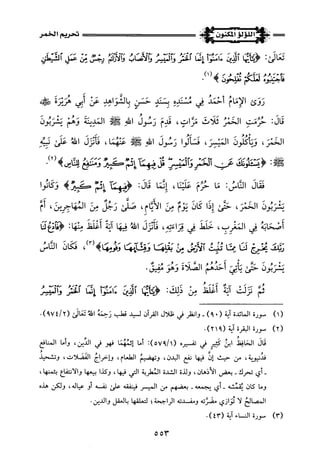 اللؤلؤ المكنون
تحريم الخمر
تَعَالَى: ﴿يَا أَيُّهَا الَّذِينَ آمَنُوا إِنَّمَا الْخَمْرُ وَالْمَيْسِرُ وَالْأَنصَابُ وَالْأَزْلَامُ رِجْسٌ مِّنْ عَمَلِ الشَّيْطَانِ
فَاجْتَنِبُوهُ لَعَلَّكُمْ تُفْلِحُونَ﴾(١).
رَوَى الإِمَامُ أَحْمَدُ فِي مُسْنَدِهِ بِسَنَدٍ حَسَنٍ بِالشَّوَاهِدِ عَنْ أَبِي هُرَيْرَةَ ﷺ
قَالَ: حُرِّمَتِ الخَمْرُ ثَلَاثَ مَرَّاتٍ، قَدِمَ رَسُولُ اللهِ ﷺ المَدِينَةَ وَهُمْ يَشْرَبُونَ
الخَمْرَ، وَيَأْكُلُونَ المَيْسِرَ، فَسَأَلُوا رَسُولَ اللهِ ﷺ عَنْهُمَا، فَأَنْزَلَ اللهُ عَلَى نَبِيِّهِ
ﷺ: ﴿يَسْأَلُونَكَ عَنِ الْخَمْرِ وَالْمَيْسِرِ قُلْ فِيهِمَا إِثْمٌ كَبِيرٌ وَمَنَافِعُ لِلنَّاسِ﴾(٢)
فَقَالَ النَّاسُ: مَا حُرِّمَ عَلَيْنَا، إِنَّمَا قَالَ: ﴿فِيهِمَا إِثْمٌ كَبِيرٌ﴾ وَكَانُوا
يَشْرَبُونَ الخَمْرَ، حَتَّى إِذَا كَانَ يَوْمٌ مِنَ الأَيَّامِ، صَلَّى رَجُلٌ مِنَ المُهَاجِرِينَ، أَمَّ
أَصْحَابَهُ فِي المَغْرِبِ، خَلَطَ فِي قِرَاءَتِهِ، فَأَنْزَلَ اللهُ فِيهَا آيَةً أَغْلَظَ مِنْهَا:
فَكَانَ النَّاسُ
يَشْرَبُونَ حَتَّى يَأْتِيَ أَحَدُهُمُ الصَّلَاةَ وَهُوَ مُفِيقٌ.
ثُمَّ نَزَلَتْ آيَةٌ أَغْلَظُ مِنْ ذَلِكَ: ﴿يَا أَيُّهَا الَّذِينَ آمَنُوا إِنَّمَا الْخَمْرُ وَالْمَيْسِرُ
(١) سورة المائدة آية (٩٠) - وانظر في ظلال القرآن لسيد قطب رَحِمَهُ اللهُ تَعَالَى (٩٧٤/٢).
(٢) سورة البقرة آية (٢١٩).
قال الحَافِظُ ابنُ كَثِيرٍ في تفسيره (٥٧٩/١): أما إثمُهُمَا فهو في الدِّين، وأما المنافع
فدُنيوية، من حيث إنَّ فيها نفع البدن، وتهضيمَ الطعام، وإخراجَ الفَضَلات، وتشحيذ
- أي تحرك - بعض الأذهان، ولذة الشدة المُطربة التي فيها، وكذا بيعها والانتفاع بثمنها،
وما كان يُقَمِّشه - أي يجمعه - بعضهم من الميسر فينفقه على نفسه أو عياله، ولكن هذه
المصالحُ لا تُوَازِي مَضَرَّته ومفسدته الراجحة؛ لتعلقها بالعقل والدين.
(٣) سورة النساء آية (٤٣).
٥٥٣